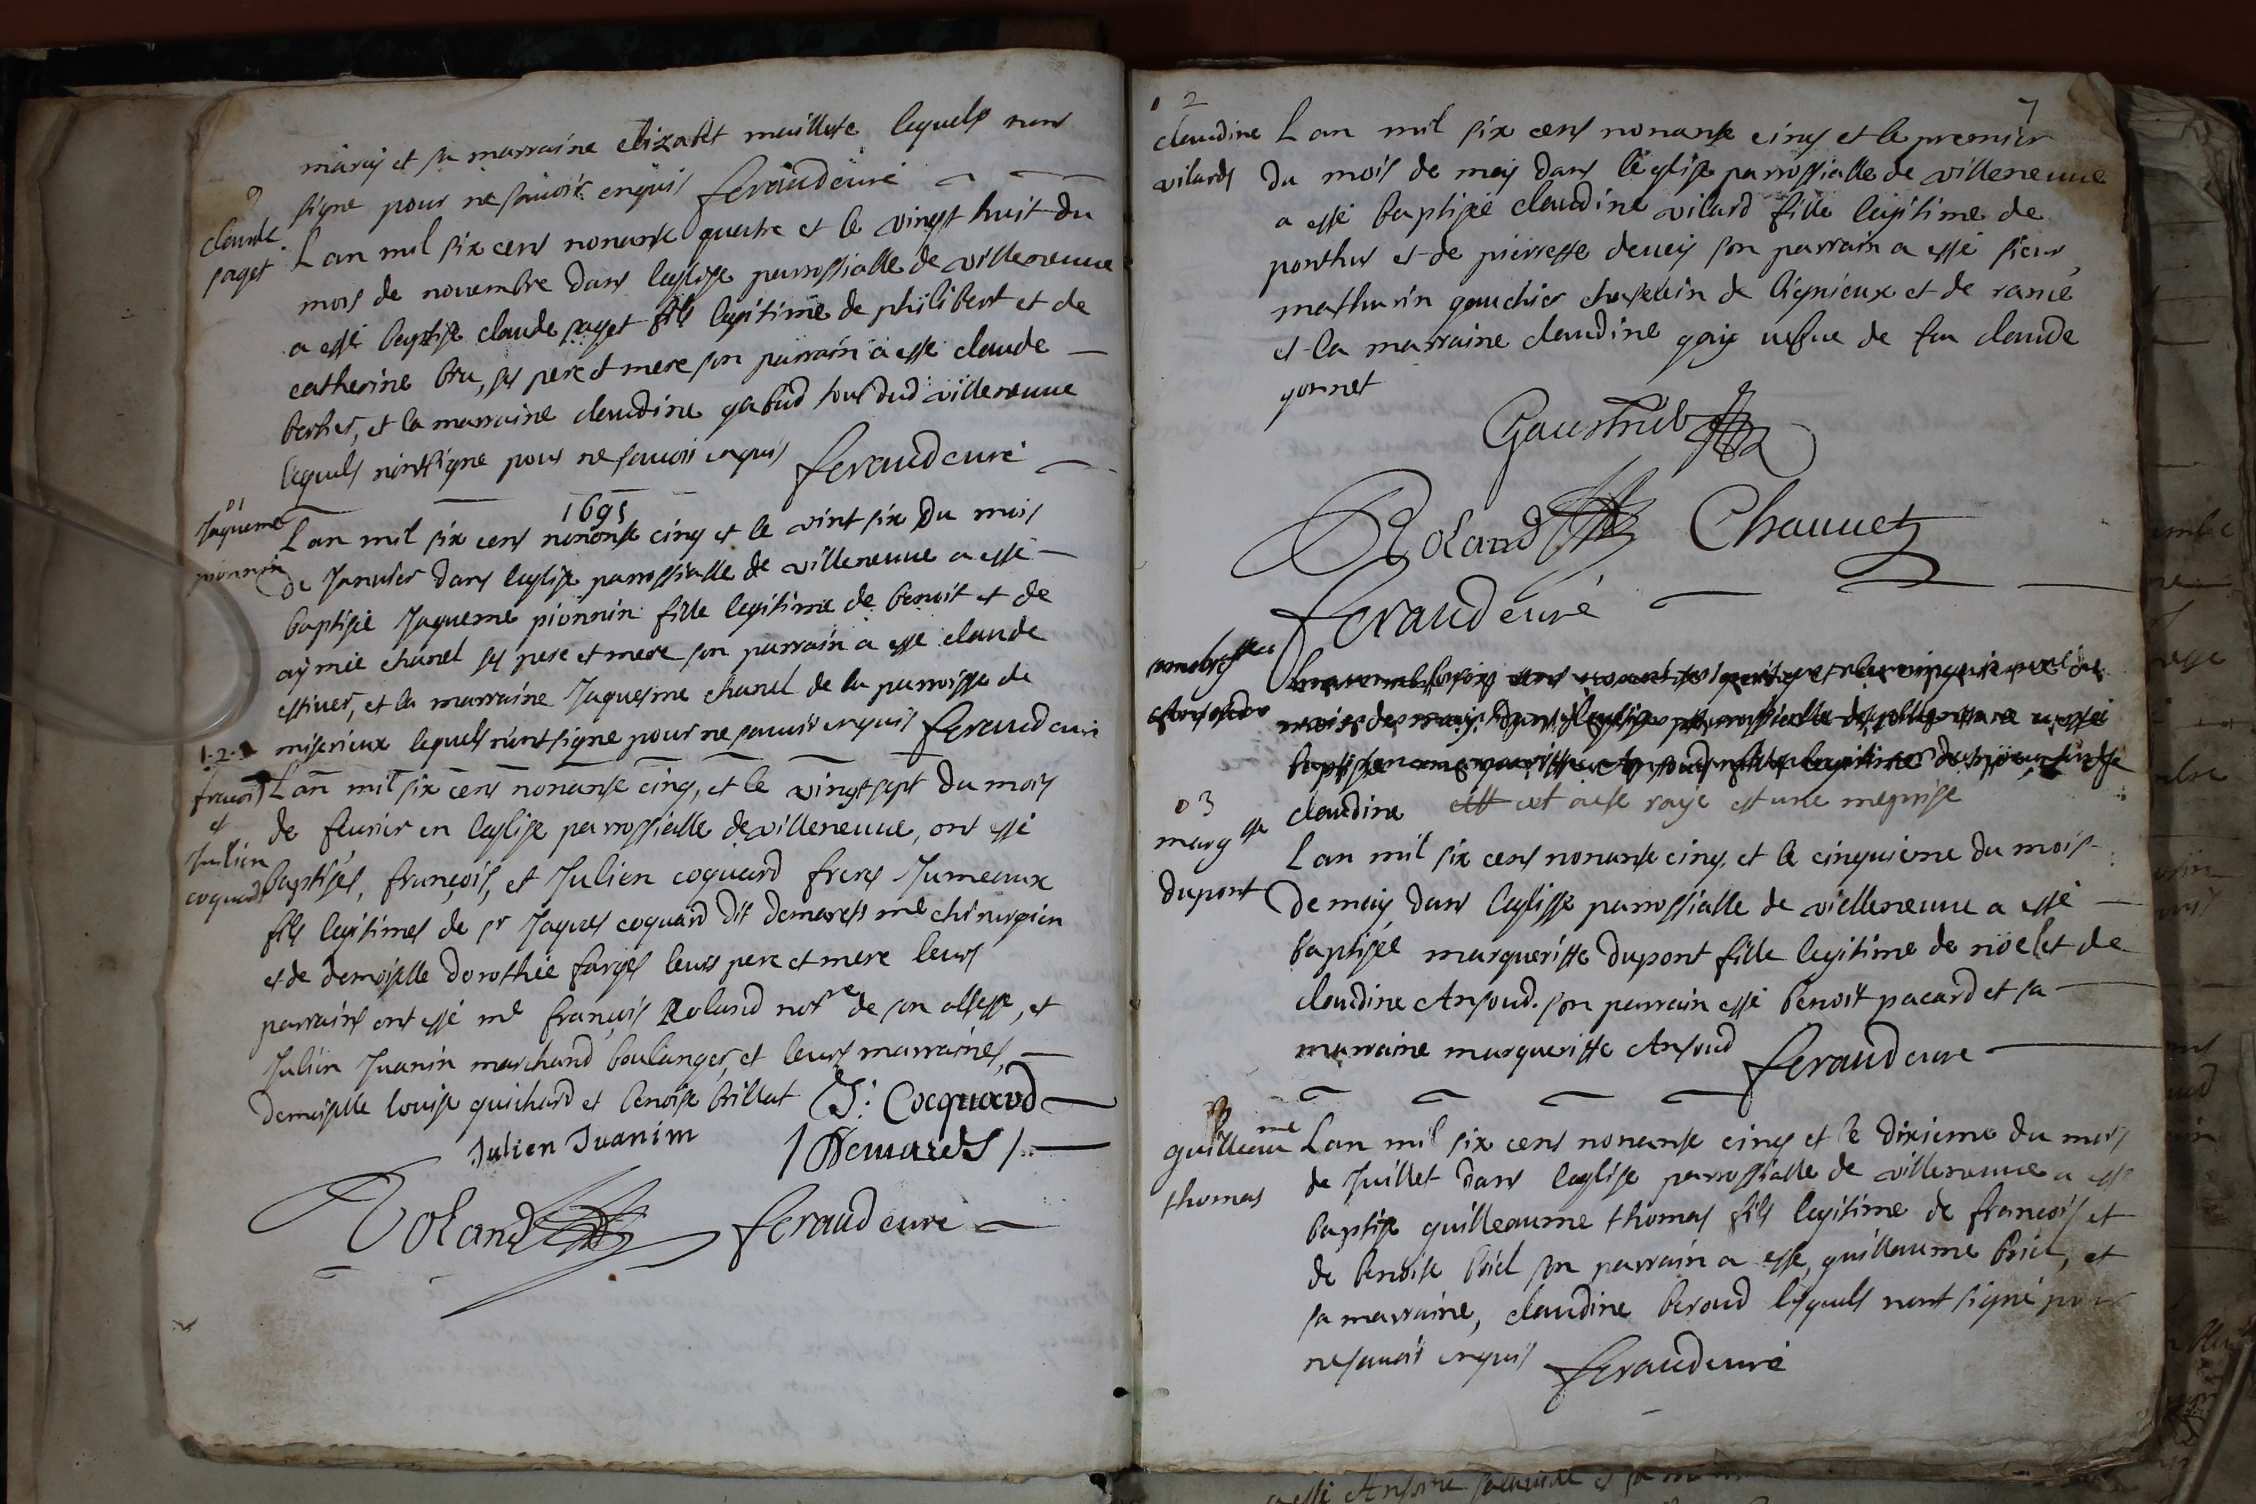 marig et sa marraine elizabet maillete lequels nont
signe pour ne scavoir enquis feraud curé
claude
paget
Lan mil six cens nonante quatre et le vingt huit du
mois de novembre dans leglise parrossialle de villeneuve
a esté baptise claude paget fils legitime de philibert et de
catherine bru, ses pere et mere son parrain a esté claude
berthet, et la marraine claudine gabud tous dud villeneuve
lequels nont signe pour ne scavoir enquis feraud curé
1695
01
Jaqueme
pionnin
Lan mil six cens nonante cinq et le vint six du mois
de Janvier dans leglise parrossialle de villeneuve a esté
baptisée Jaqueme pionnin fille legitime de benoit et de
aymée chanel ses pere et mere son parrain a esté claude
estiver, et la marraine Jaquesme chanel de la parroisse de
miserieux lequels nont signe pour ne scavoir enquis feraud curé
1-2-
francois
et
Julien
coquard
Lan mil six cens nonante cinq, et le vingt sept du mois
de feuvrier en leglise parrossialle de villeneuve, ont esté
baptisés, françois, et Julien coquard freres Jumeaux
fils legitimes de sr Jaques coquard dit demarets me chirurgien
et de demoiselle dorothée farges leurs pere et mere leurs
parrains ont esté me françois Roland notre de son altesse, et
Julien Juanin marchand boulanger, et leurs marraines,
demoiselle louise guichard et benoise brillat J: Cocquard
Julien Juanim / Demarets /
Roland feraud curé
2
7
claudine
vilards
Lan mil six cens nonante cinq et le premier
du mois de may dans leglise parrossialle de villeneuve
a esté baptisée claudine vilard fille legitime de
ponthus et de pierresse deveis son parrain a esté sieur
mathurin gauchier chastelain de ligneux et de rancé
et la marraine claudine goix vefve de feu claude
gonnet
Roland Chauvet
feraud curé
claudine cet acte rayé est une meprise
03
margte
dupont
Lan mil six cens nonante cinq, et le cinquieme du mois
de may dans leglisse parrossialle de vielleneuve a esté
baptisée margueritte dupont fille legitime de noel et de
claudine Ansoud. son parrain esté benoit pacard et sa
marraine margueritte Ansoud feraud cure
guilleaume
thomas
Lan mil six cens nonante cinq et le dixieme du mois
de Juillet dans leglise parrossialle de villeneuve a esté
baptise guilleaume thomas fils legitime de françois et
de benoise briel son parrain a esté, guillaume briel, et
sa marraine, claudine beroud lesquels nont signé pour
ne scavoir enquis feraud curé